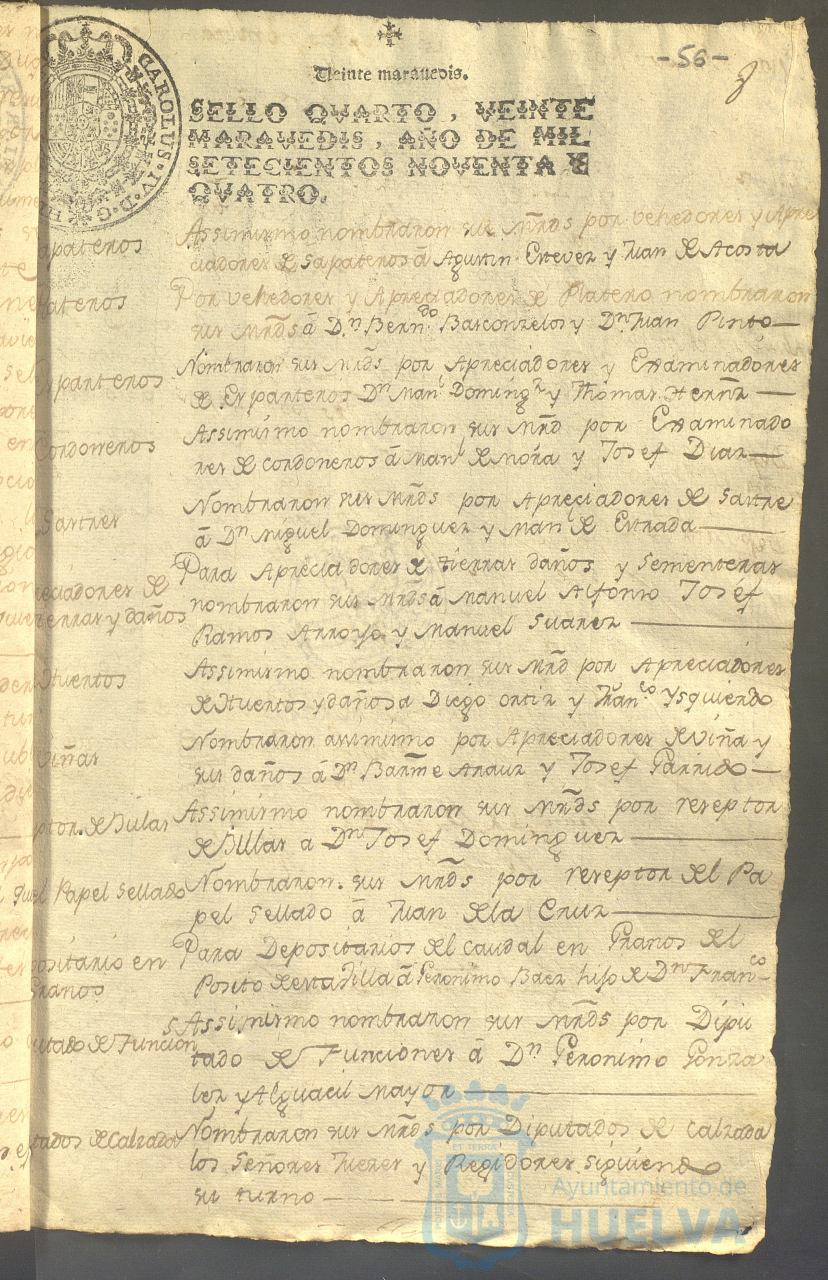 -56-
Veinte marauedis.
CAROLUS·IV·D·G·
SELLO QVARTO, VEINTE
MARAVEDIS, AÑO DE MIL
SETECIENTOS NOVENTA Y
QVATRO.
apateros
Assimismo nombraron sus Mrds por vehedores y Apre
ciadores de Sapateros á Agustin Estevez y Juan de Acosta
lateros
Por vehedores y Apreciadores de Platero nombraron
sus Mrds á Dn Berndo Basconzelos y Dn Juan Pinto
sparteros
Nombraron sus Mrds por Apreciadores y Examinadores
de Esparteros Dn Manl Domingz y Thomas Hernz
Cordoneros
Assimismo nombraron sus Mrd por Examinado
res de cordoneros á Manl de Mora y Josef Diaz
Sastres
Nombraron sus Mrds por Apreciadores de Sastre
á Dn Miguel Dominguez y Manl de Estrada
reciadores de
tierras y daños
Para Apreciadores de tierras daños y sementeras
nombraron sus Mrds á Manuel Alfonso Josef
Ramos Arroyo y Manuel Suarez
Huertos
Assimismo nombraron sus Mrd por Apreciadores
de Huertos y daños a Diego ortiz y Franco Ysquierdo
Viñas
Nombraron assimismo por Apreciadores de Viña y
sus daños á Dn Barme Arauz y Josef Garrido
ptor de Bulas
Assimismo nombraron sus Mrds por reseptor
de Bullas a Dn Josef Dominguez
Papel Sellado
Nombraron sus Mrds por reseptor del Pa
pel Sellado á Juan de la Cruz
positario en
Granos
Para Depositarios del caudal en Granos del
Posito de esta Villa á Geronimo Baez hijo de Dn Franco
utado de Funcion
Assimismo nombraron sus Mrds por Dipu
tado de Funciones á Dn Geronimo Gonza
lez y Alguacil Mayor
utados de Calzadas
Nombraron sus Mrds por Diputados de calzada
los Señores Juezes y Regidores siguiendo
su turno
Ayuntamiento de
HUELVA